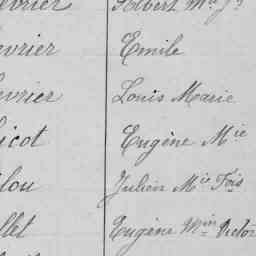 évrier Albert M.ie J.h
évrier Emile
évrier Louis Marie
icot Eugène M.ie
lou Julien M.ie Fois
llet Eugène M.in Victor